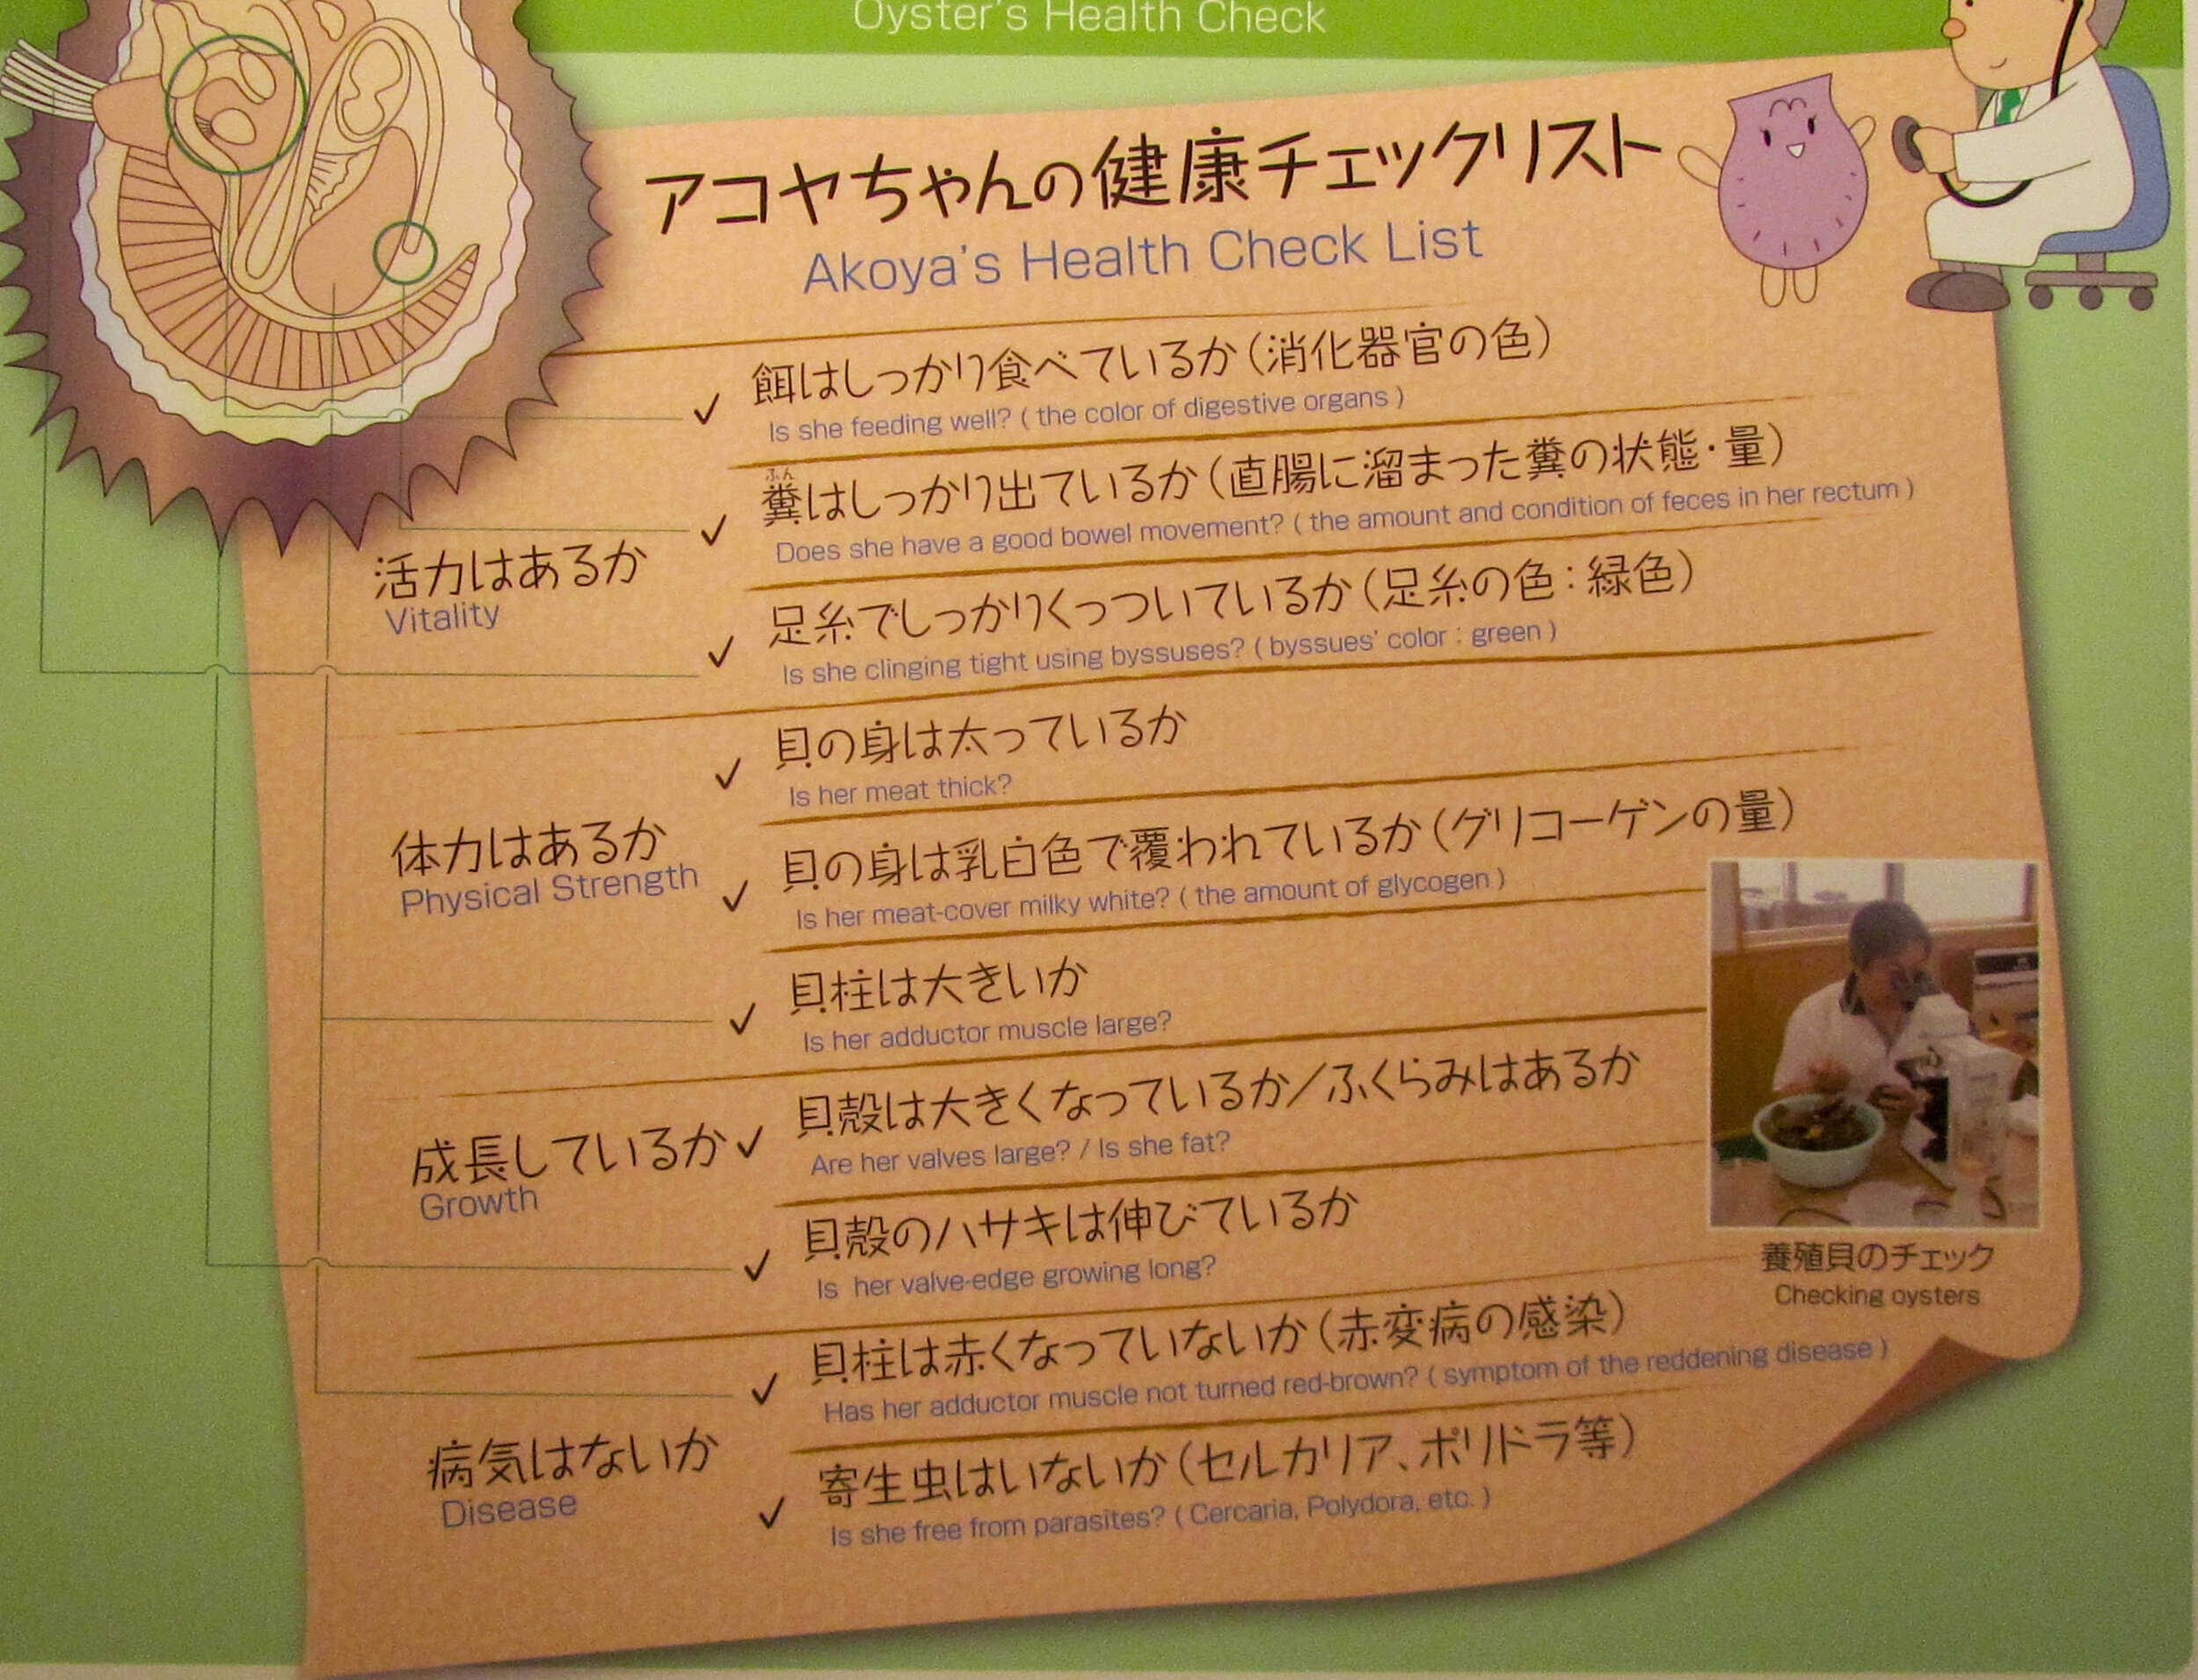 Oyster's Health Check
アコヤちゃんの健康チェックリスト
Akoya's Health Check List
活力はあるか
Vitality
餌はしっかり食べているか（消化器官の色）
Is she feeding well? ( the color of digestive organs )
ふん
糞はしっかり出ているか（直腸に溜まった糞の状態・量）
Does she have a good bowel movement? ( the amount and condition of feces in her rectum )
足糸でしっかりくっついているか（足糸の色：緑色）
Is she clinging tight using byssuses? ( byssues' color : green )
体力はあるか
Physical Strength
貝の身は太っているか
Is her meat thick?
貝の身は乳白色で覆われているか（グリコーゲンの量）
Is her meat-cover milky white? ( the amount of glycogen )
貝柱は大きいか
Is her adductor muscle large?
成長しているか
Growth
貝殻は大きくなっているか／ふくらみはあるか
Are her valves large? / Is she fat?
貝殻のハサキは伸びているか
Is her valve-edge growing long?
病気はないか
Disease
貝柱は赤くなっていないか（赤変病の感染）
Has her adductor muscle not turned red-brown? ( symptom of the reddening disease )
寄生虫はいないか（セルカリア、ポリドラ等）
Is she free from parasites? ( Cercaria, Polydora, etc. )
養殖貝のチェック
Checking oysters